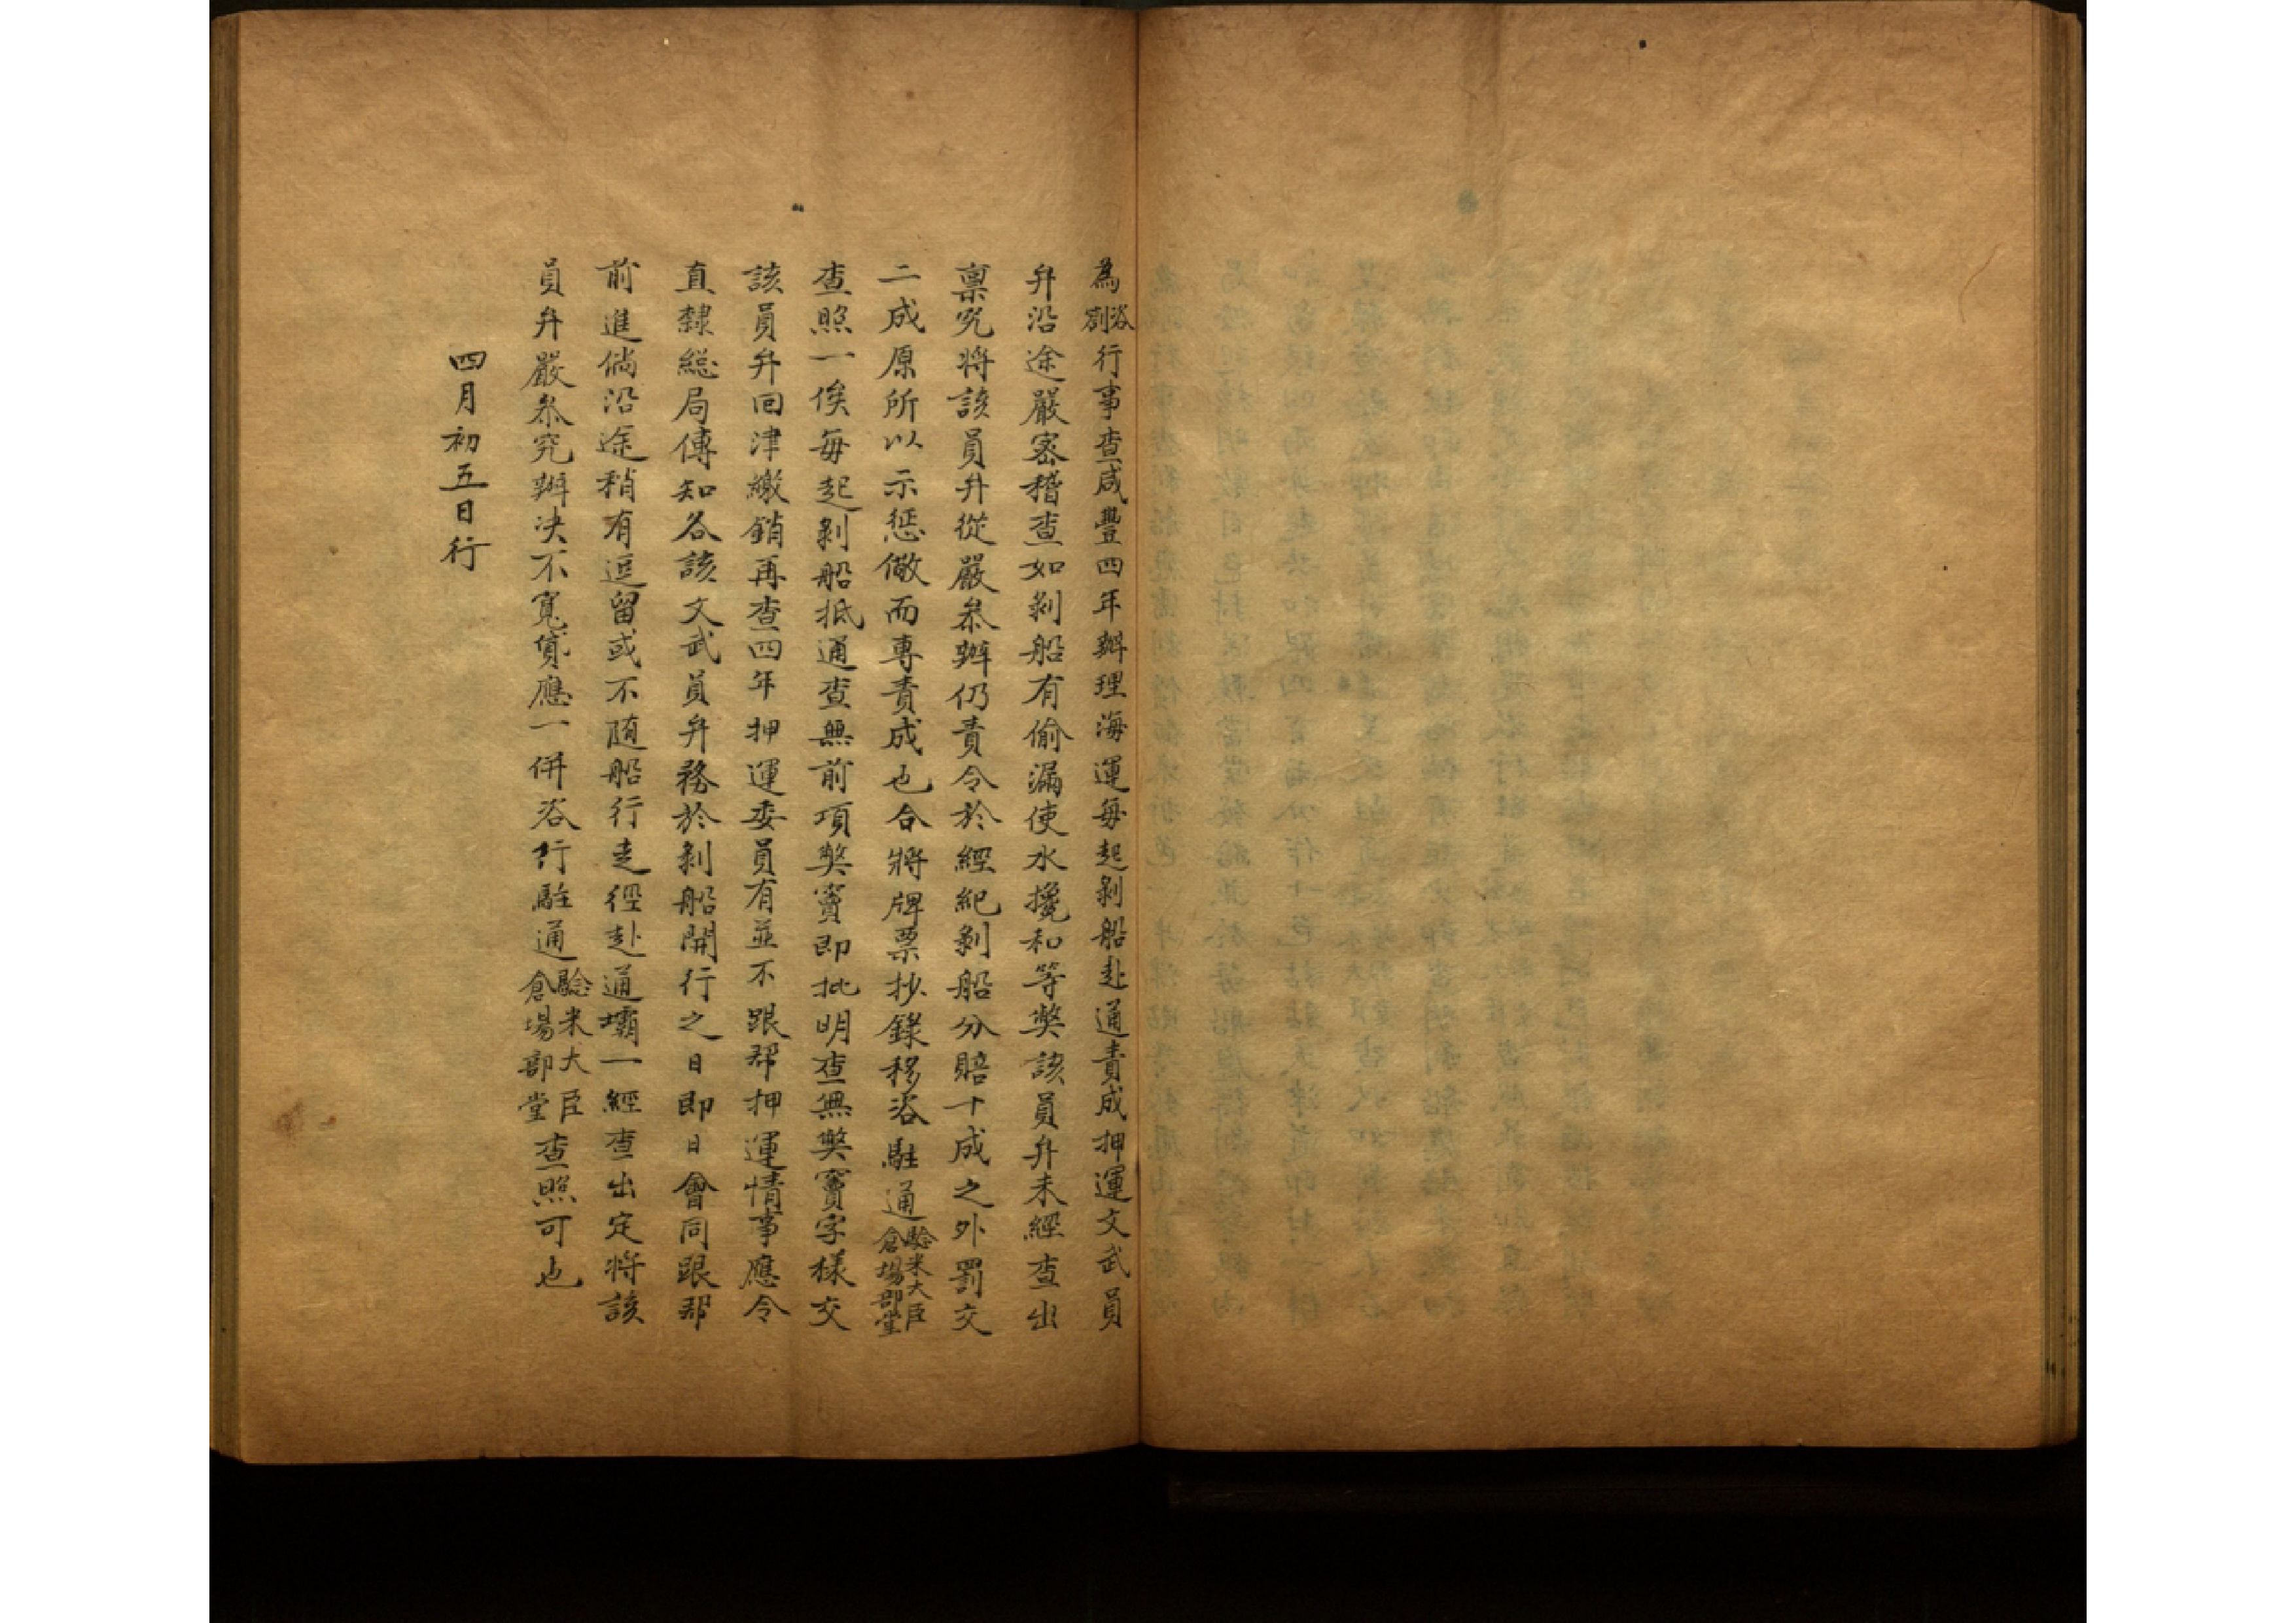 為咨劄行事查咸豐四年辦理海運每起剝船赴通責成押運文武員
弁沿途嚴密稽查如剝船有偷漏使水攙和等獘該員弁未經查出
禀究將該員弁從嚴叅辦仍責令於經紀剝船分賠十成之外罰交
二成原所以示懲儆而專責成也合將牌票抄錄移咨駐通驗米大臣倉場部堂
查照一俟每起剝船抵通查無前項獘竇即批明查無獘竇字樣交
該員弁回津繳銷再查四年押運委員有並不跟帮押運情事應令
直隸總局傳知各該文武員弁務於剝船開行之日即日會同跟帮
前進倘沿途稍有逗留或不随船行走徑赴通壩一經查出定將該
員弁嚴叅究辦决不寬貸應一併咨行駐通驗米大臣倉場部堂查照可也
四月初五日行